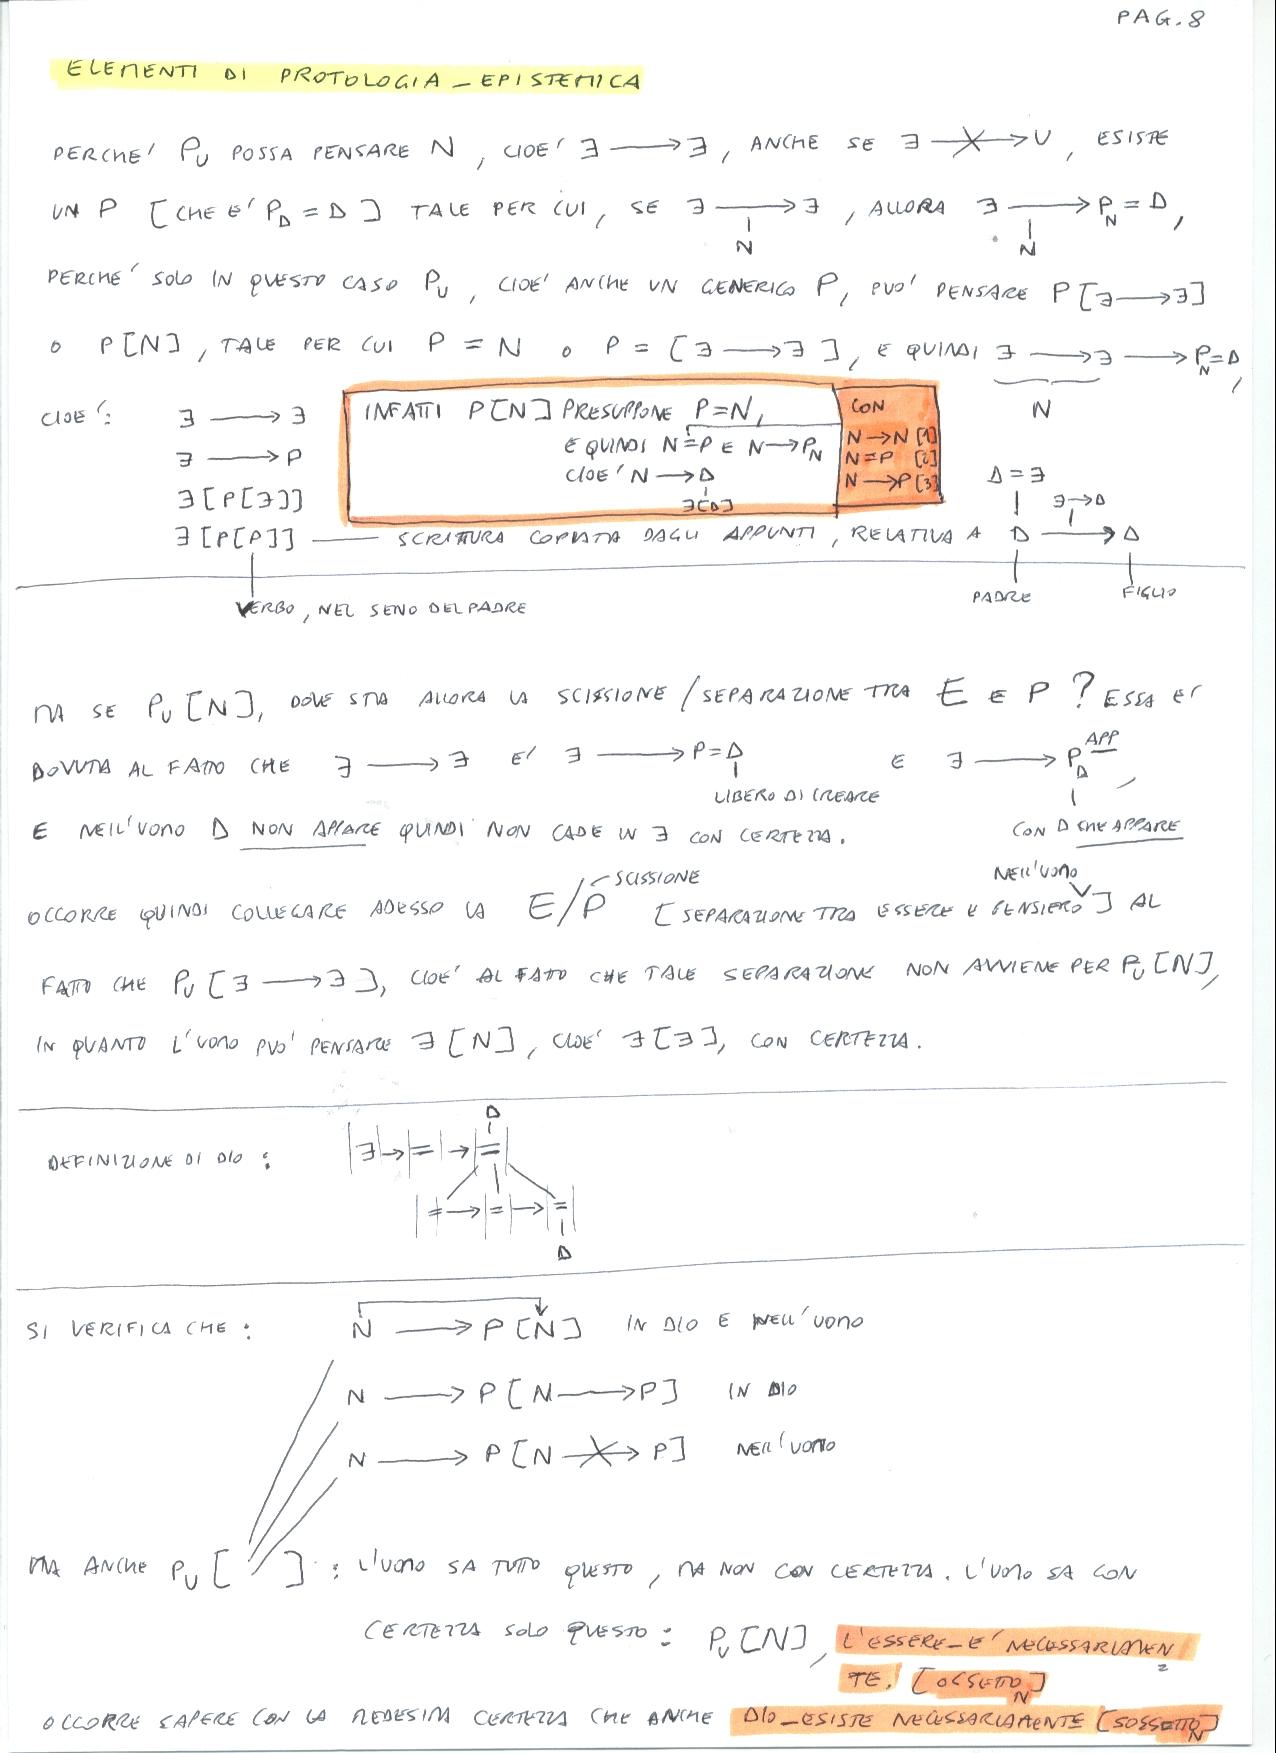 PAG. 8
ELEMENTI DI PROTOLOGIA_EPISTEMICA
PERCHE' PU POSSA PENSARE N, CIOE' ∃ ⟶ ∃, ANCHE SE ∃ -X-> U, ESISTE
UN P [CHE E' PD = D] TALE PER CUI, SE ∃ ⟶ ∃, ALLORA ∃ ⟶ PN = D,
N N
PERCHE' SOLO IN QUESTO CASO PU, CIOE' ANCHE UN GENERICO P, PUO' PENSARE P[∃ ⟶ ∃]
O P[N], TALE PER CUI P = N O P = [∃ ⟶ ∃], E QUINDI ∃ ⟶ ∃ ⟶ PN = D,
N
CIOE': ∃ ⟶ ∃
∃ ⟶ P
∃[P[∃]]
∃[P[P]] — SCRITTURA COPIATA DAGLI APPUNTI, RELATIVA A D ⟶ D
INFATTI P[N] PRESUPPONE P=N,
E QUINDI N=P E N→PN
CIOE' N→D
∃[D]
CON
N→N [1]
N=P [2]
N→P [3]
D = ∃
∃→D
VERBO, NEL SENO DEL PADRE
PADRE
FIGLIO
MA SE PU[N], DOVE STA ALLORA LA SCISSIONE/SEPARAZIONE TRA E E P? ESSA E'
DOVUTA AL FATTO CHE ∃ ⟶ ∃ E' ∃ ⟶ P=D E ∃ ⟶ PD APP,
LIBERO DI CREARE
CON D CHE APPARE
E NELL'UOMO D NON APPARE QUINDI NON CADE IN ∃ CON CERTEZZA.
SCISSIONE
NELL'UOMO
OCCORRE QUINDI COLLEGARE ADESSO LA E/P [SEPARAZIONE TRA ESSERE E PENSIERO] AL
FATTO CHE PU[∃ ⟶ ∃], CIOE' AL FATTO CHE TALE SEPARAZIONE NON AVVIENE PER PU[N],
IN QUANTO L'UOMO PUO' PENSARE ∃[N], CIOE' ∃[∃], CON CERTEZZA.
D
DEFINIZIONE DI DIO: |∃|→|=|→|=|
|≠→|=|→|=|
D
SI VERIFICA CHE: N ⟶ P[N] IN DIO E NELL'UOMO
N ⟶ P[N ⟶ P] IN DIO
N ⟶ P[N -X-> P] NELL'UOMO
MA ANCHE PU[ ]: L'UOMO SA TUTTO QUESTO, MA NON CON CERTEZZA. L'UOMO SA CON
CERTEZZA SOLO QUESTO: PU[N], L'ESSERE_E' NECESSARIAMEN
TE. [OGGETTON]
OCCORRE SAPERE CON LA MEDESIMA CERTEZZA CHE ANCHE DIO_ESISTE NECESSARIAMENTE [SOGGETTON]